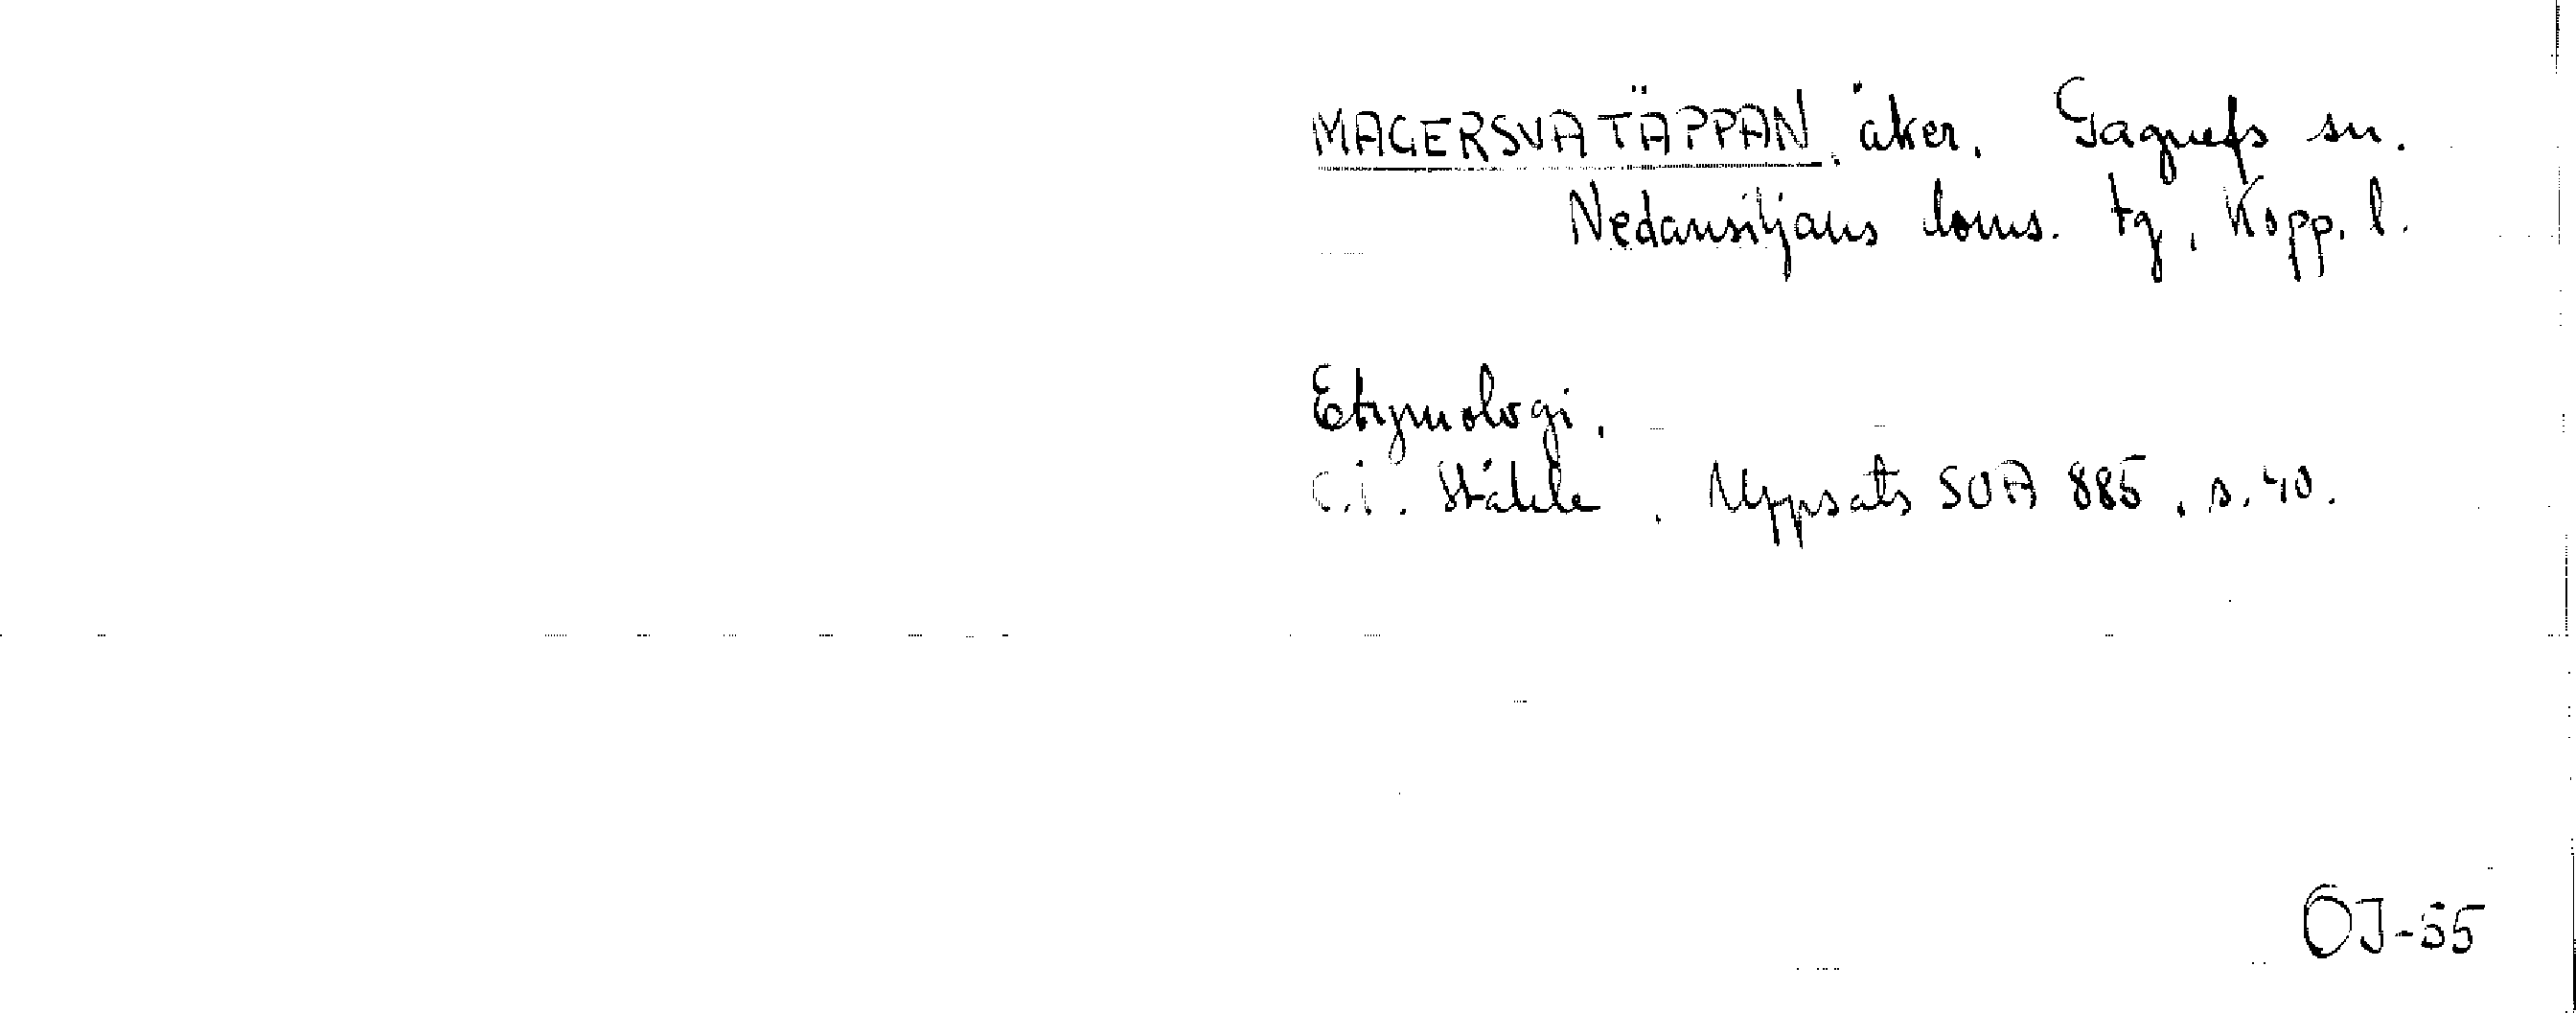 MAGERSVATÄPPAN, åker. Gagnefs sn.
Nedansiljans doms. tg, Kopp. l.
Etymologi.
C.I. Ståhle. Uppsats SOA 885, s. 40.
OJ-55